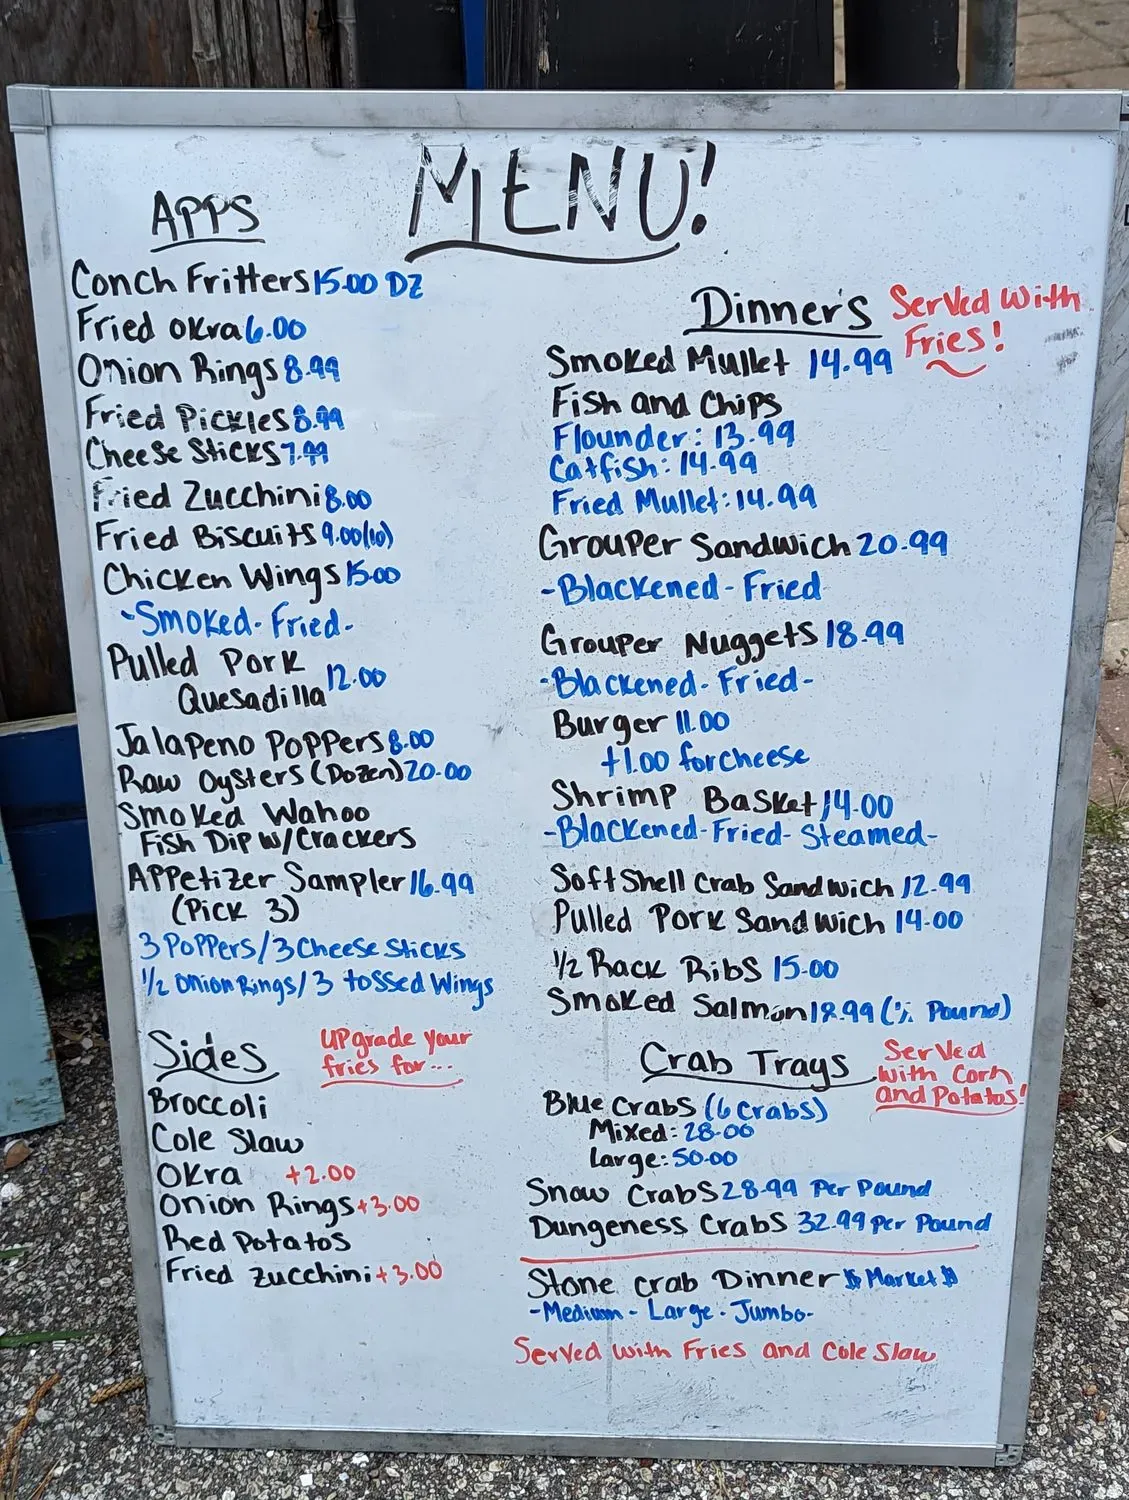 MENU!
APPS
Conch Fritters 15.00 DZ
Fried Okra 6.00
Onion Rings 8.99
Fried Pickles 8.99
Cheese Sticks 7.99
Fried Zucchini 8.00
Fried Biscuits 9.00 (10)
Chicken Wings 15.00
-Smoked-Fried-
Pulled Pork
Quesadilla 12.00
Jalapeno Poppers 8.00
Raw Oysters (Dozen) 20.00
Smoked Wahoo
Fish Dip w/Crackers
Appetizer Sampler 16.99
(Pick 3)
3 Poppers/3 Cheese Sticks
1/2 Onion Rings/3 tossed Wings
Sides
Upgrade your
fries for...
Broccoli
Cole Slaw
Okra +2.00
Onion Rings +3.00
Red Potatos
Fried Zucchini +3.00
Dinner's
Served With
Fries!
Smoked Mullet 14.99
Fish and Chips
Flounder: 13.99
Catfish: 14.99
Fried Mullet: 14.99
Grouper Sandwich 20.99
-Blackened-Fried
Grouper Nuggets 18.99
-Blackened-Fried-
Burger 11.00
+1.00 for cheese
Shrimp Basket 14.00
-Blackened-Fried-Steamed-
Soft Shell Crab Sandwich 12.99
Pulled Pork Sandwich 14.00
1/2 Rack Ribs 15.00
Smoked Salmon 18.99 Pound)
Crab Trays
Served
with Corn
and Potatos!
Blue Crabs (6 Crabs)
Mixed: 28.00
Large: 50.00
Snow Crabs 28.99 Per Pound
Dungeness Crabs 32.99 per Pound
Stone Crab Dinner $ Market $
-Medium-Large-Jumbo-
Served with Fries and Cole Slaw